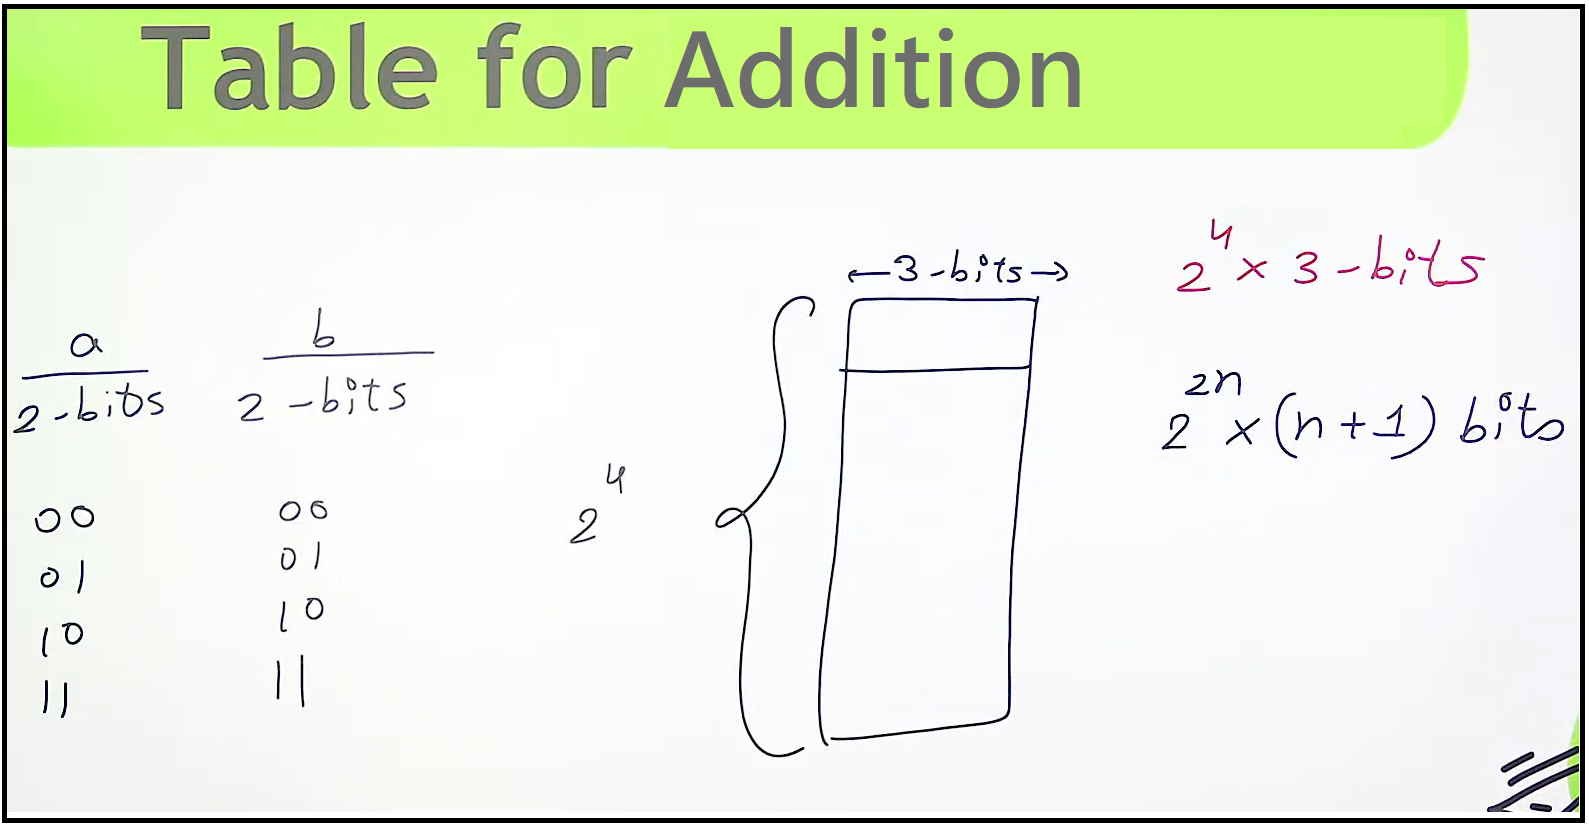 Table for Addition
a
2-bits
00
01
10
11
b
2-bits
00
01
10
11
2^4
←3-bits→
2^4 × 3-bits
2^2n × (n+1) bits